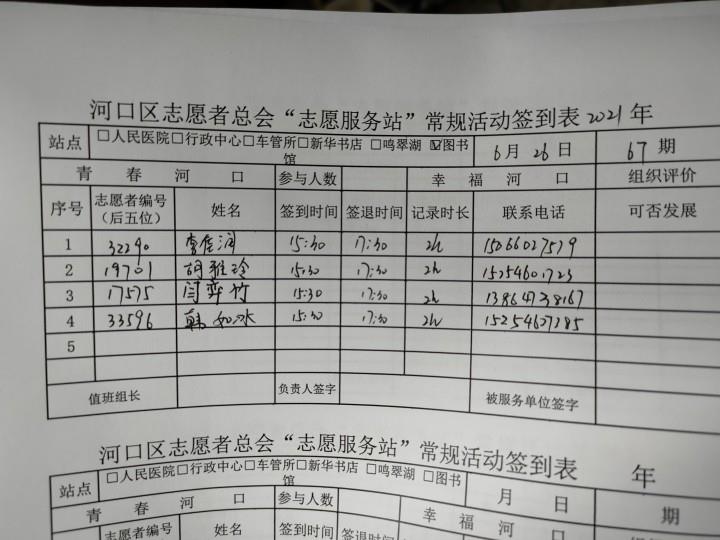 河口区志愿者总会“志愿服务站”常规活动签到表 2021 年
站点 □人民医院□行政中心□车管所□新华书店 □鸣翠湖 ☑图书馆 6月 26 日 67 期
青 春 河 口 参与人数 幸 福 河 口 组织评价
序号 志愿者编号（后五位） 姓名 签到时间 签退时间 记录时长 联系电话 可否发展
1 32290 15:30 17:30 2h
2 19701 胡雅玲 15:30 17:30 2h 15254601723
3 17575 闫弈竹 15:30 17:30 2h 13864738167
4 33596 韩如冰 15:30 17:30 2h 15254627385
5
值班组长 负责人签字 被服务单位签字
河口区志愿者总会“志愿服务站”常规活动签到表 年
站点 □人民医院□行政中心□车管所□新华书店 □鸣翠湖 □图书馆 月 日 期
青 春 河 口 参与人数 幸 福 河 口
志愿者编号 姓名 签到时间 签退时间 记录时长 联系电话